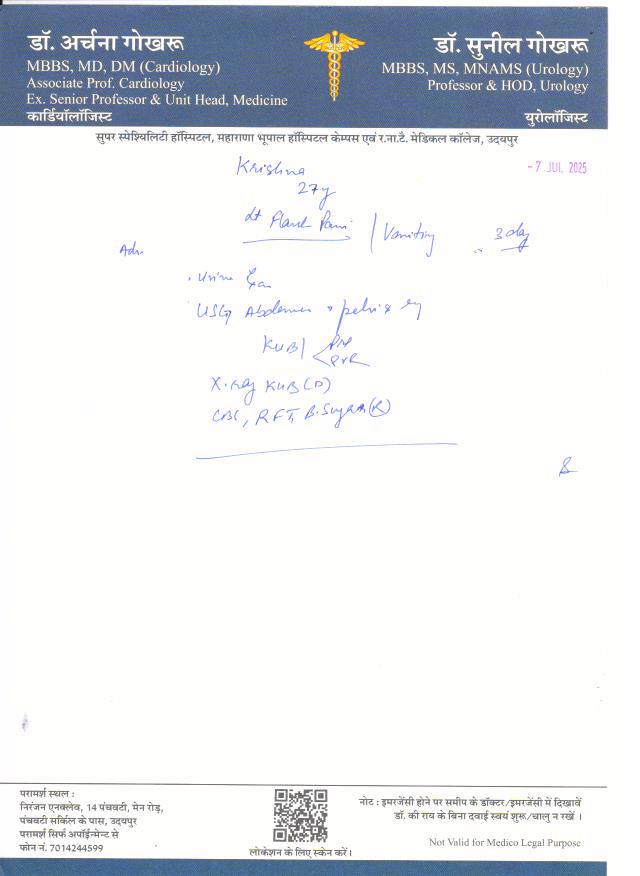 डॉ. अर्चना गोखरू
MBBS, MD, DM (Cardiology)
Associate Prof. Cardiology
Ex. Senior Professor & Unit Head, Medicine
कार्डियॉलॉजिस्ट
डॉ. सुनील गोखरू
MBBS, MS, MNAMS (Urology)
Professor & HOD, Urology
युरोलॉजिस्ट
सुपर स्पेश्यिलिटी हॉस्पिटल, महाराणा भूपाल हॉस्पिटल केम्पस एवं र.ना.टै. मेडिकल कॉलेज, उदयपुर
- 7 JUL 2025
Krishna
27y
Flank Pain / Vomiting 3 day
Adv.
Urine
USG Abdomen + pelvis
KUB
PVR
X-ray KUB (D)
CBC, RFT, B. Sugar (R)
परामर्श स्थल :
निरंजन एनक्लेव, 14 पंचवटी, मेन रोड़,
पंचवटी सर्किल के पास, उदयपुर
परामर्श सिर्फ अपॉईन्मेन्ट से
फोन नं. 7014244599
लोकेशन के लिए स्केन करें।
नोट : इमरजेंसी होने पर समीप के डॉक्टर/इमरजेंसी में दिखावें
डॉ. की राय के बिना दवाई स्वयं शुरू/चालु न रखें ।
Not Valid for Medico Legal Purpose